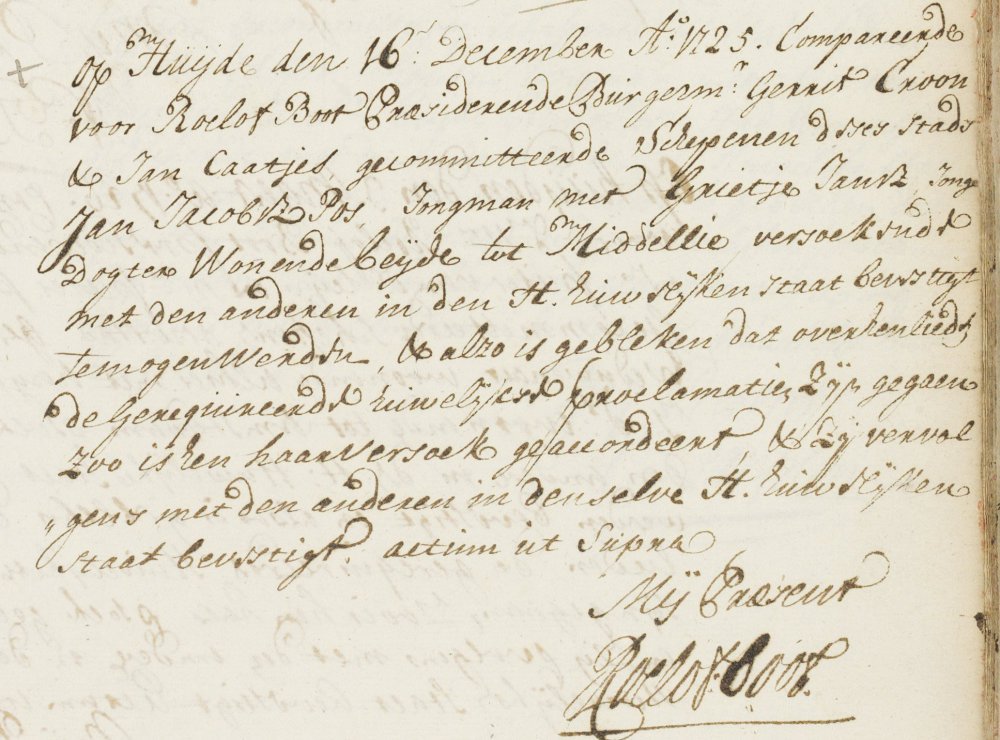 op Huijde den 16.' December Aº. 1725. Compareerde
voor Roelof Boot Præsiderende Burgerm.r Gerrit Croon
& Jan Caatjes, gecommitteerde Schepenen dses stads
Jan Jacobsz Pos Jongman met Grietje Jansz Jonge
Dogter Wonende beijde tot Middellie versoekende
met den anderen in den H. huwelijken staat bevestigt
te mogen Werden, & alzo is gebleken dat over henlieds
de Gerequireerde huwelijkse proclamatien Zijn gegaen
zoo is hen haar versoek geaccordeert, & Zij vervol
„gens met den anderen in den selve H. huwelijken
staat bevestigt. actum ut Supra
Mij Præsent
Roelof Boot.